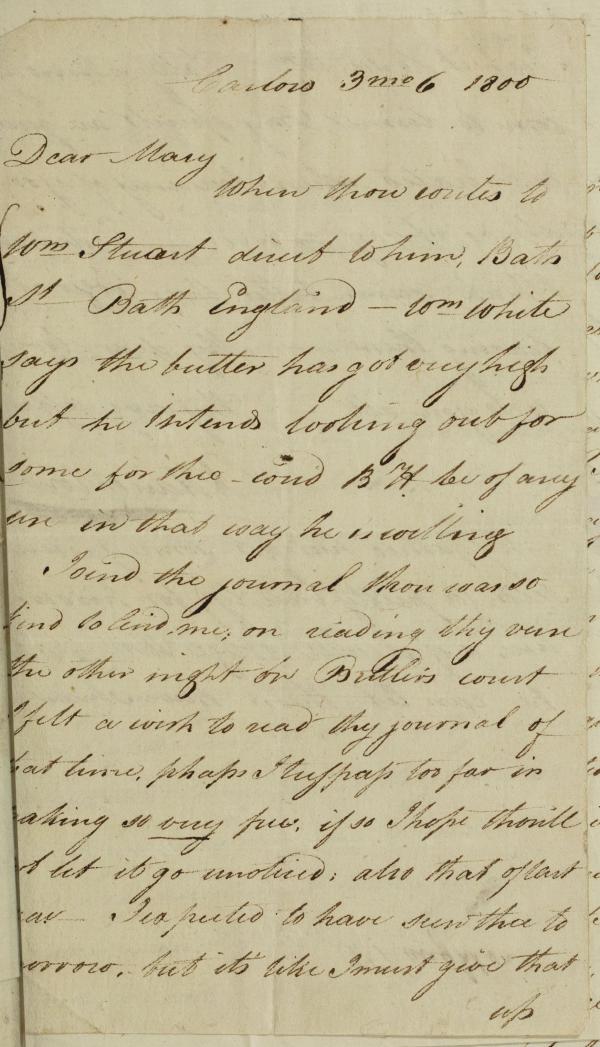 Carlow 3mo 6 1800
Dear Mary
When thou writes to
Wm Stuart direct to him, Bath
St Bath England – Wm White
says the butter has got very high
but he Intends looking out for
some for thee – coud B H. be of any
use in that way he is willing
I send the journal thou was so
kind to lend me; on reading thy verse
the other night on Butlers court
I felt a wish to read thy journal of
that time, phaps I trespass too far in
making so very free, if so I hope thou'll
not let it go unoticed; also that of last
year – I expected to have seen thee to
morrow, but it's like I must give that
up